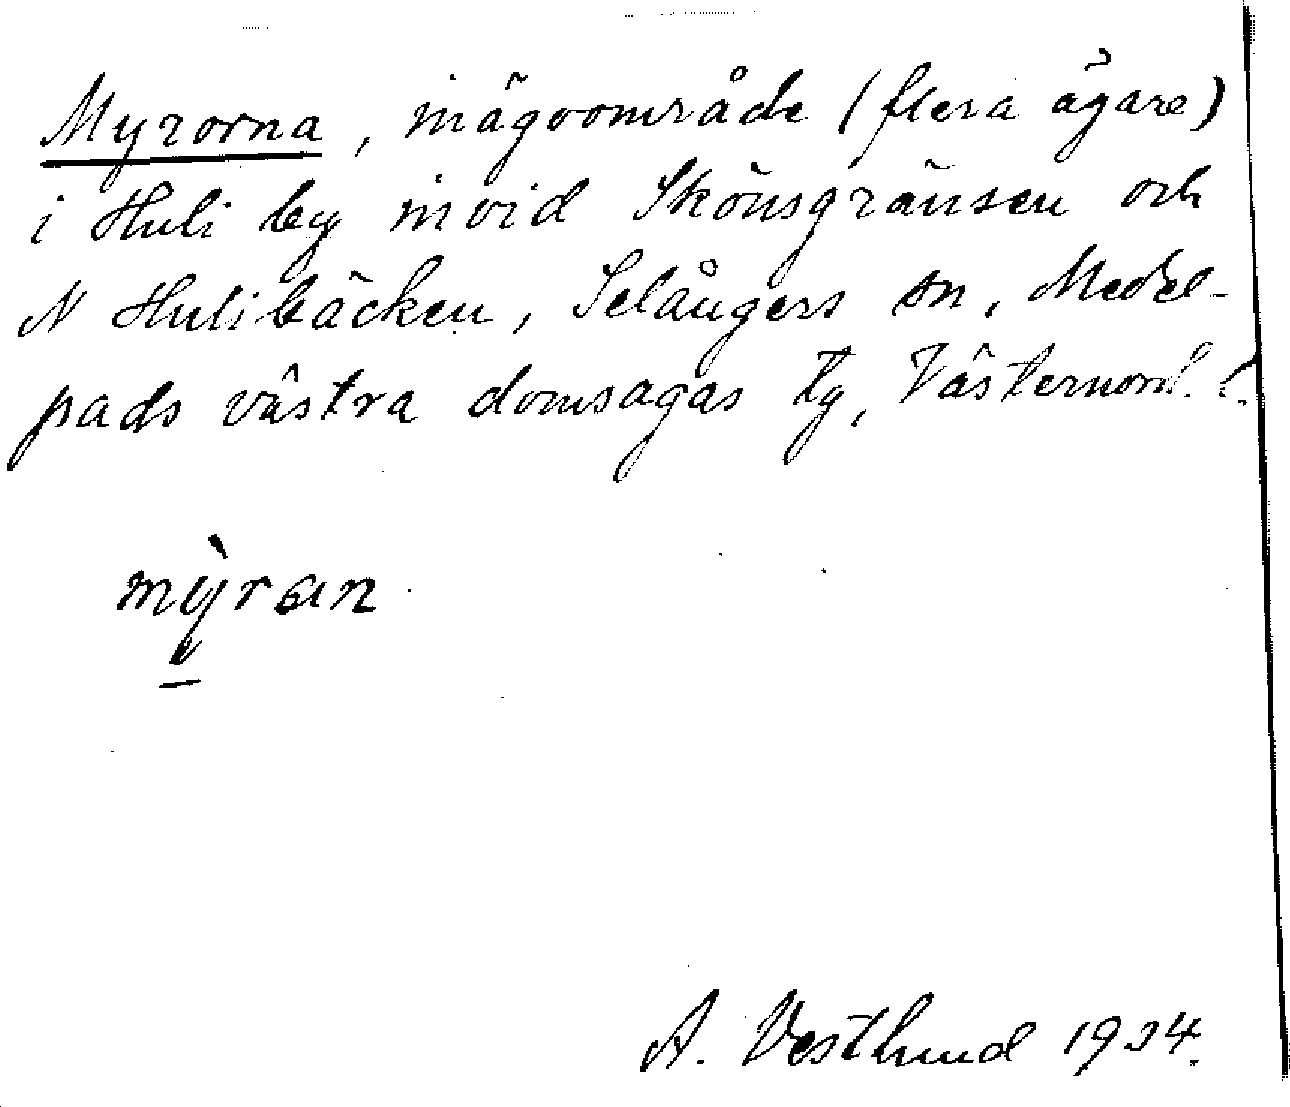 Myrorna, inägoområde (flera ägare)
i Huli by invid Skönsgränsen och
N Hulibäcken, Selångers sn, Medel-
pads västra domsagas tg, Västernorrl. l.
mỳran
A. Vestlund 1934.